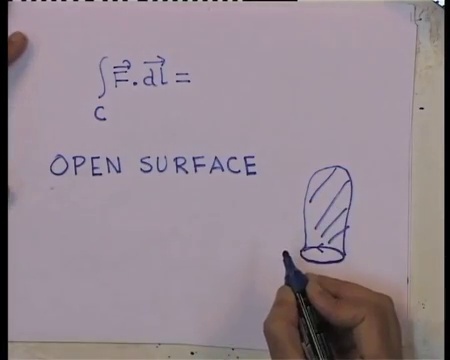 ∫ F⃗ . dl⃗ =
C
OPEN SURFACE